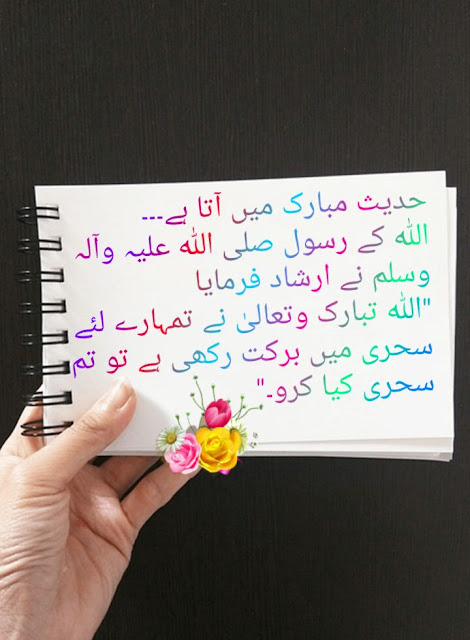 حدیث مبارک میں آتا ہے۔۔۔
اللہ کے رسول صلی اللہ علیہ وآلہ
وسلم نے ارشاد فرمایا
"اللہ تبارک وتعالیٰ نے تمہارے لئے
سحری میں برکت رکھی ہے تو تم
سحری کیا کرو۔"